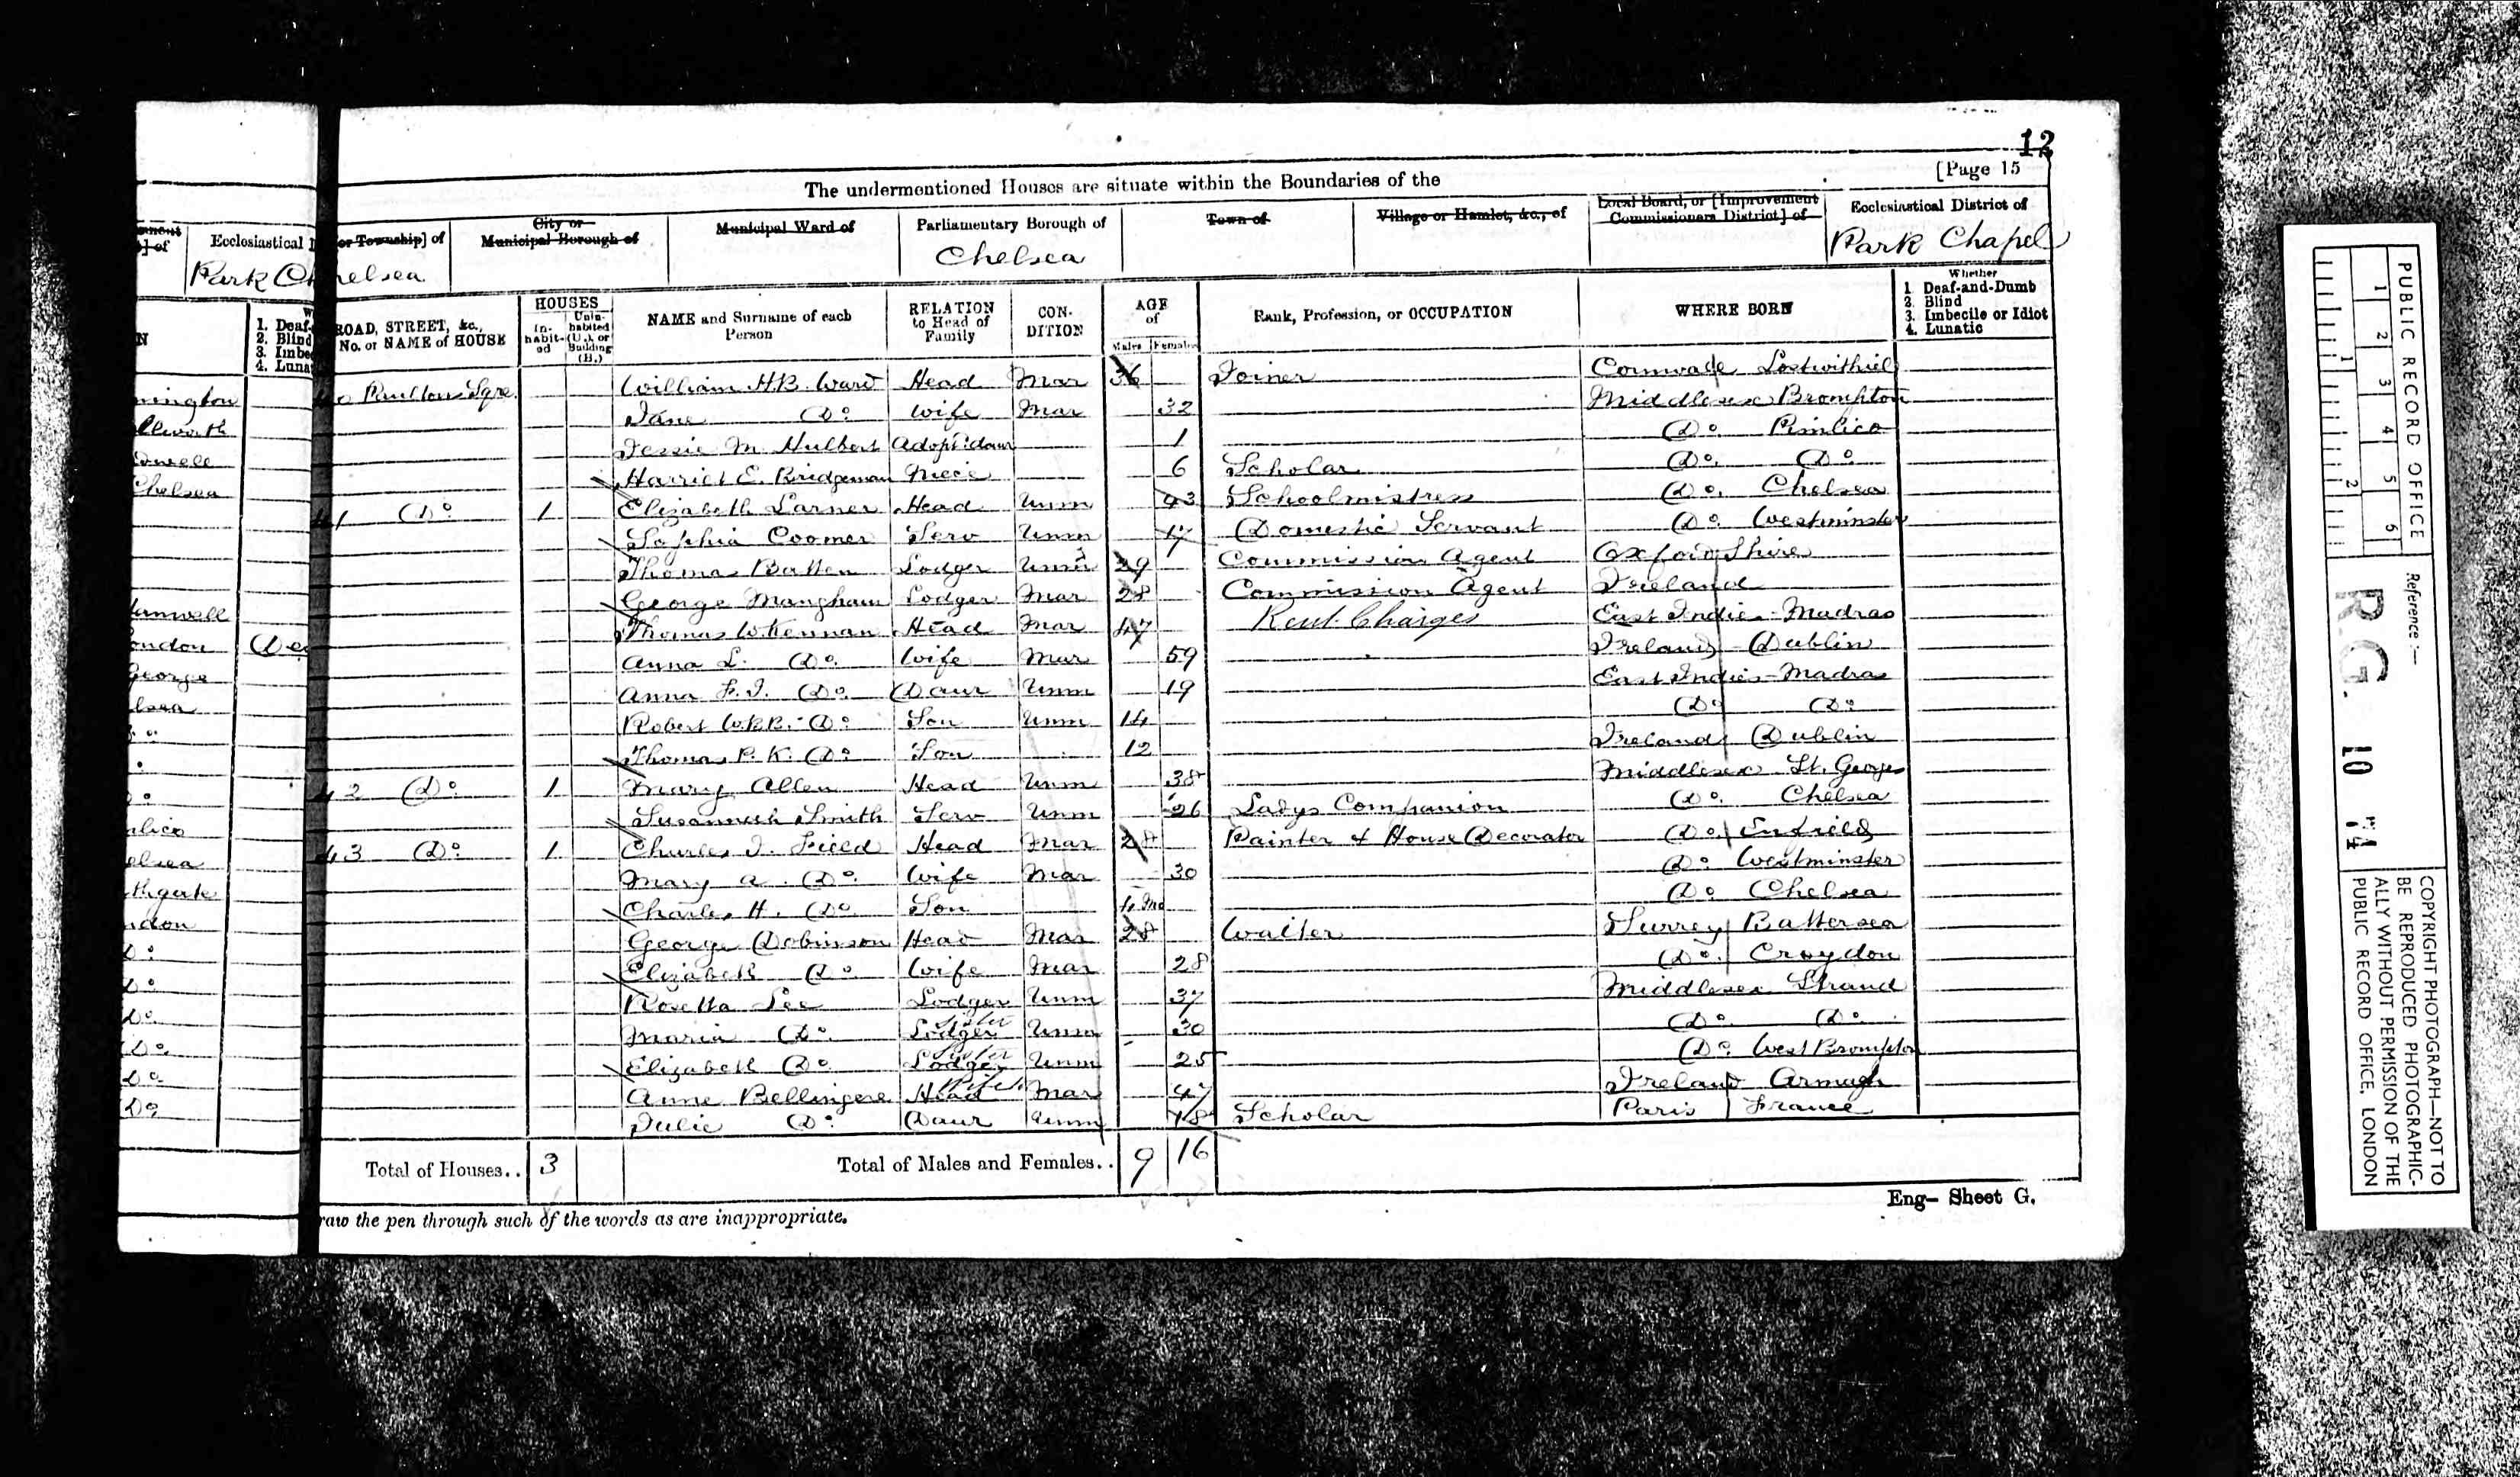 12
[Page 15
The undermentioned Houses are situate within the Boundaries of the
Ecclesiastical
Park Ch
or Township] of
elsea
City or Municipal Borough of
Municipal Ward of
Parliamentary Borough of
Chelsea
Town of
Village or Hamlet, &c., of
Local Board, or [Improvement Commissioners District] of
Ecclesiastical District of
Park Chapel
1. Deaf-
2. Blind
3. Imbe
4. Luna
ROAD, STREET, &c., No. or NAME of HOUSE
HOUSES
In-habit-ed
Unin-habited (U.), or Building (B.)
NAME and Surname of each Person
RELATION to Head of Family
CON-DITION
AGE of
Males Females
Rank, Profession, or OCCUPATION
WHERE BORN
Whether
1. Deaf-and-Dumb
2. Blind
3. Imbecile or Idiot
4. Lunatic
Paultons Sqre William H.B. Ward Head Mar 36 Joiner Cornwall Lostwithiel
Jane Do. Wife Mar 32 Middlesex Brompton
Jessie M. Hulbert Adopt. daur 1 Do. Pimlico
Harriet E. Bridgeman Niece 6 Scholar Do. Do.
41 Do. 1 Elizabeth Larner Head Unm 43 Schoolmistress Do. Chelsea
Sophia Coomer Serv Unm 17 Domestic Servant Do. Westminster
Thomas Batten Lodger Unm 29 Commission Agent Oxfordshire
George Mangham Lodger Mar 28 Commission Agent Ireland
Thomas W. Kennan Head Mar 47 Rent Charges East Indies - Madras
Anna L. Do. Wife Mar 59 Ireland Dublin
Anna F. I. Do. Daur Unm 19 East Indies - Madras
Robert Do. Son Unm 14 Do. Do.
Thomas P. K. Do. Son 12 Ireland Dublin
42 Do. 1 Mary Allen Head Unm 38 Middlesex St. Georges
Susannah Smith Serv Unm 26 Ladys Companion Do. Chelsea
43 Do. 1 Charles J. Field Head Mar 28 Painter & House Decorator Do. Enfield
Mary A. Do. Wife Mar 30 Do. Westminster
Charles H. Do. Son 4 Mo Do. Chelsea
George Dobinson Head Mar 28 Waiter Surrey Battersea
Elizabeth Do. Wife Mar 28 Do. Croydon
Rosetta Lee Lodger Unm 37 Middlesex Strand
Maria Do. Lodger Sister Unm 30 Do. Do.
Elizabeth Do. Lodger Sister Unm 25 Do. West Brompton
Anne Bellingere Head Wife Mar 47 Ireland Armagh
Julie Do. Daur Unm 18 Scholar Paris France
Total of Houses.. 3
Total of Males and Females.. 9 16
Eng- Sheet G.
raw the pen through such of the words as are inappropriate.
PUBLIC RECORD OFFICE
1 2 3 4 5 6
1 2
Reference :—
R.G. 10 74
COPYRIGHT PHOTOGRAPH—NOT TO
BE REPRODUCED PHOTOGRAPHIC-
ALLY WITHOUT PERMISSION OF THE
PUBLIC RECORD OFFICE, LONDON